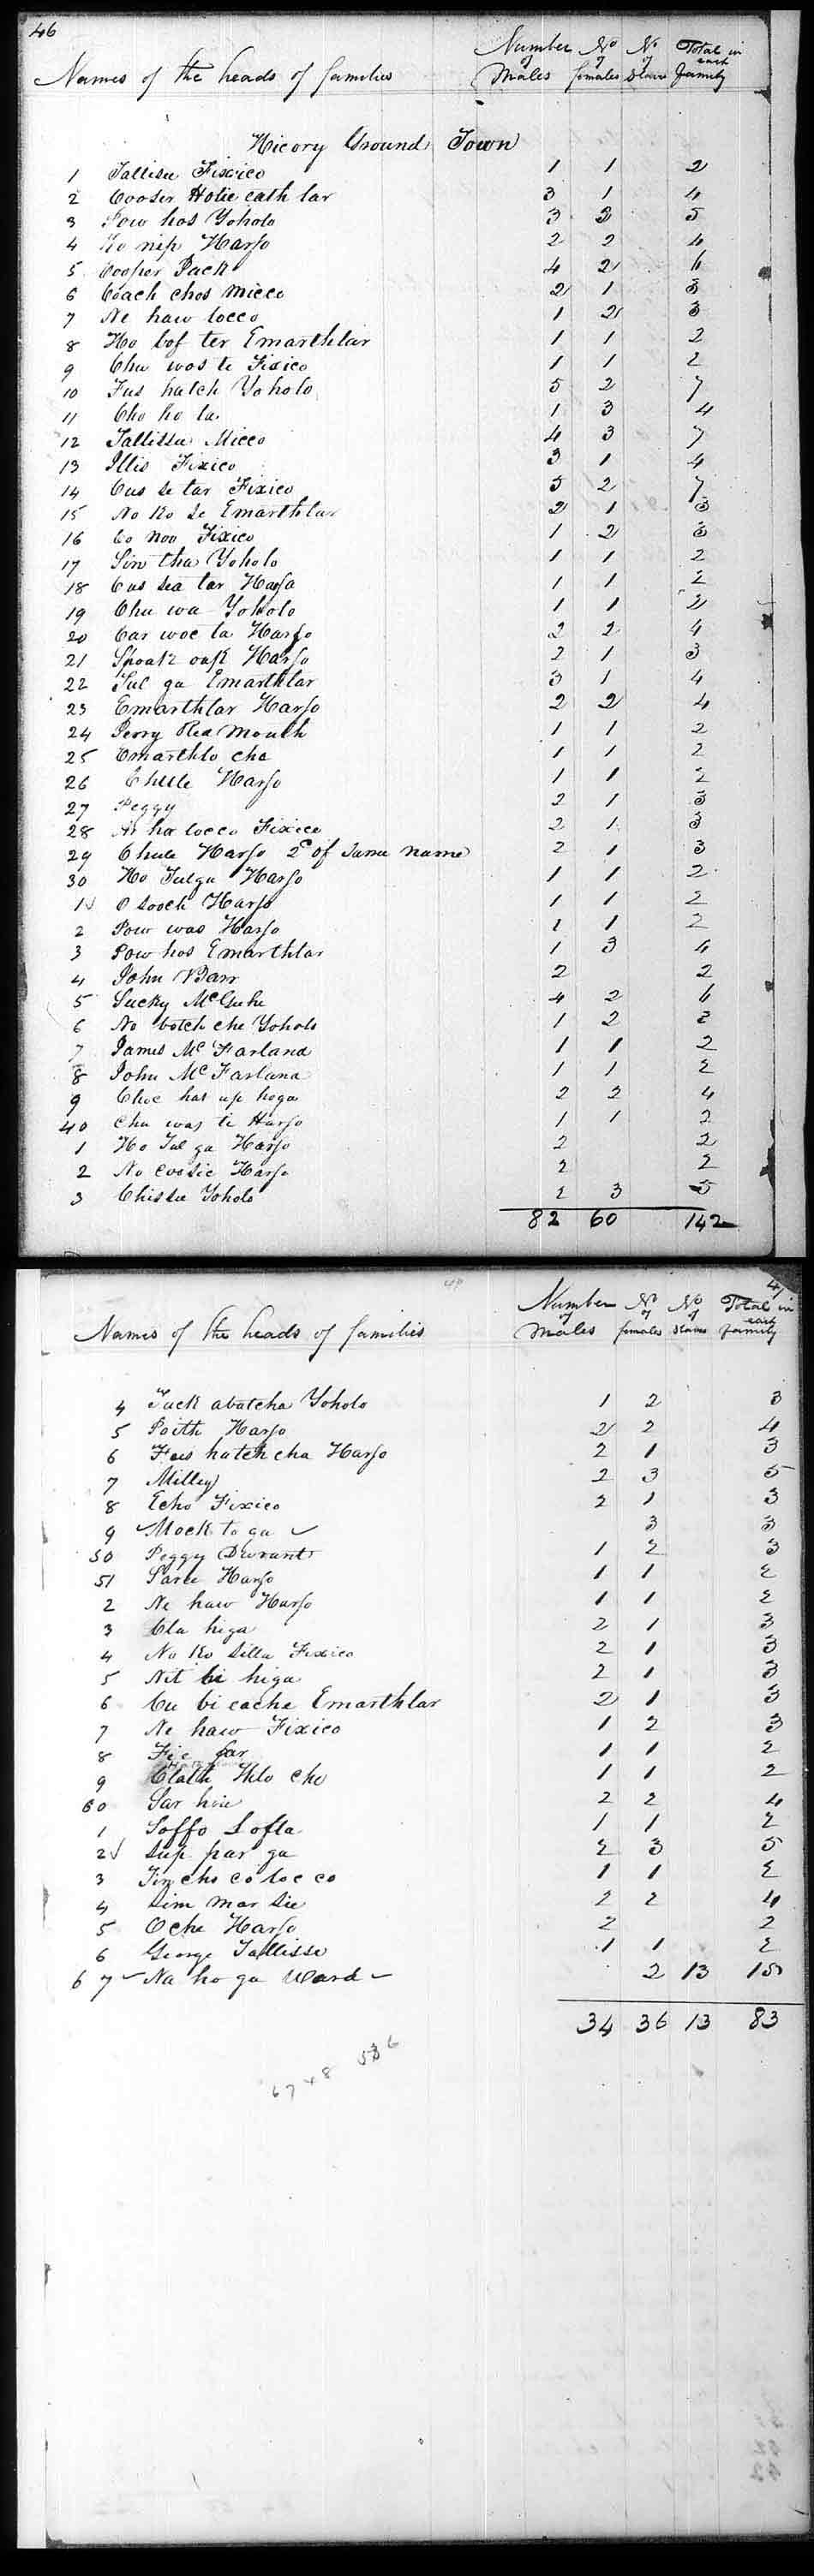 46
Names of the heads of families Number of Males No of females No of Slaves Total in each family
Hicory Ground Town
1 Tallisee Fixico 1 1 2
2 Cooser Hotie cath lar 3 1 4
3 Pow hos Yoholo 3 2 5
4 Ko nip Harjo 2 2 4
5 Cooper Jack 4 2 6
6 Coach chos Micco 2 1 3
7 Ne haw locco 1 2 3
8 Ho bof ter Emarthlar 1 1 2
9 Chu wos te Fixico 1 1 2
10 Fus hatch Yoholo 5 2 7
11 Cho ko la 1 3 4
12 Tallissee Micco 4 3 7
13 Illis Fixico 3 1 4
14 Cus se tar Fixico 5 2 7
15 No ko se Emarthlar 2 1 3
16 Co noo Fixico 1 2 3
17 Sin tha Yoholo 1 1 2
18 Cus sea tar Harjo 1 1 2
19 Chu wa Yoholo 1 1 2
20 Car woc la Harjo 2 2 4
21 Spoak oak Harjo 2 1 3
22 Tul ga Emarthlar 3 1 4
23 Emarthlar Harjo 2 2 4
24 Perry Red Mouth 1 1 2
25 Emarthlo cha 1 1 2
26 Chule Harjo 1 1 2
27 Peggy 2 1 3
28 Ar ha locco Fixico 2 1 3
29 Chule Harjo 2d of same name 2 1 3
30 Ho Tulga Harjo 1 1 2
1 O sooch Harjo 1 1 2
2 Pow was Harjo 1 1 2
3 Pow hos Emarthlar 1 3 4
4 John Barr 2 2
5 Sucky McGuhe 4 2 6
6 No botch che Yoholo 1 2 3
7 James McFarland 1 1 2
8 John McFarland 1 1 2
9 Choc hat up hoga 2 2 4
40 Chu was te Harjo 1 1 2
1 Ho Tul ga Harjo 2 2
2 No cossie Harjo 2 2
3 Chissee Yoholo 2 3 5
82 60 142
47
Names of the heads of families Number of Males No of females No of Slaves Total in each family
4 Tuck abatcha Yoholo 1 2 3
5 Poith Harjo 2 2 4
6 Fus hatch cha Harjo 2 1 3
7 Milley 2 3 5
8 Echo Fixico 2 1 3
9 Mock to ga 3 3
50 Peggy Durant 1 2 3
51 Parce Harjo 1 1 2
2 Ne haw Harjo 1 1 2
3 Cla higa 2 1 3
4 No ko silla Fixico 2 1 3
5 Nit bi higa 2 1 3
6 Cu bi cache Emarthlar 2 1 3
7 Ne haw Fixico 1 2 3
8 Fie far 1 1 2
9 Clath Hlo cho 1 1 2
60 Sar hoie 2 2 4
1 Soffo Lofta 1 1 2
2 Sup par ga 2 3 5
3 Tin cho co loc co 1 1 2
4 Sim mar sie 2 2 4
5 Oche Harjo 2 2
6 George Tallisse 1 1 2
67 Na ho ga Ward 2 13 15
34 36 13 83